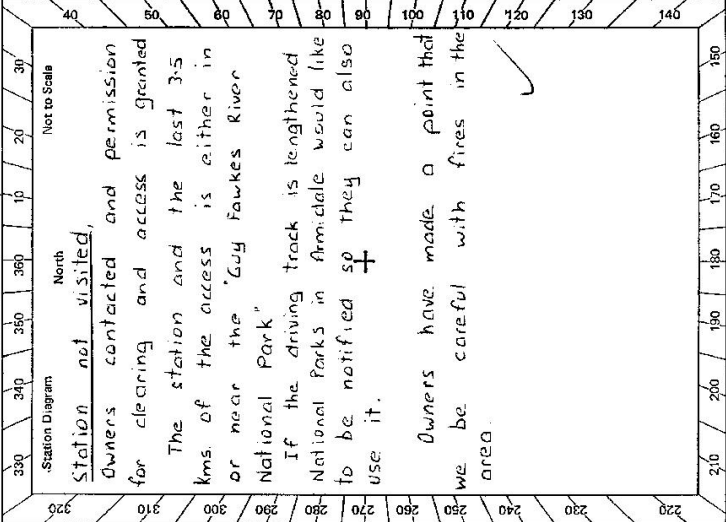 Station Diagram North Not to Scale
330 340 350 360 10 20 30
40
50
60
70
80
90
100
110
120
130
140
150
160
170
180
190
200
210
220
230
240
250
260
270
280
290
300
310
320
Station not visited,
Owners contacted and permission
for clearing and access is granted
The station and the last 3.5
kms. of the access is either in
or near the "Guy Fawkes River
National Park"
If the driving track is lengthened
National Parks in Armidale would like
to be notified so they can also
use it.
Owners have made a point that
we be careful with fires in the
area.